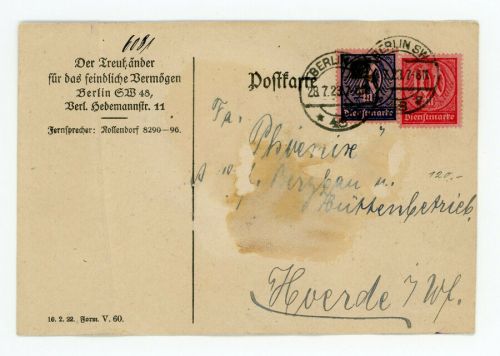 6081
Der Treuhänder
für das feindliche Vermögen
Berlin SW 48,
Verl. Hedemannstr. 11
Fernsprecher: Nollendorf 8290-96.
Postkarte
BERLIN
28.7.23.7-
BERLIN SW
.7.23.7-8
Dienstmarke
Dienstmarke
Fa.
Phoenix
Bergbau u.
Hüttenbetrieb
120.-
Hoerde i/Wf.
16. 2. 22. Form. V. 60.